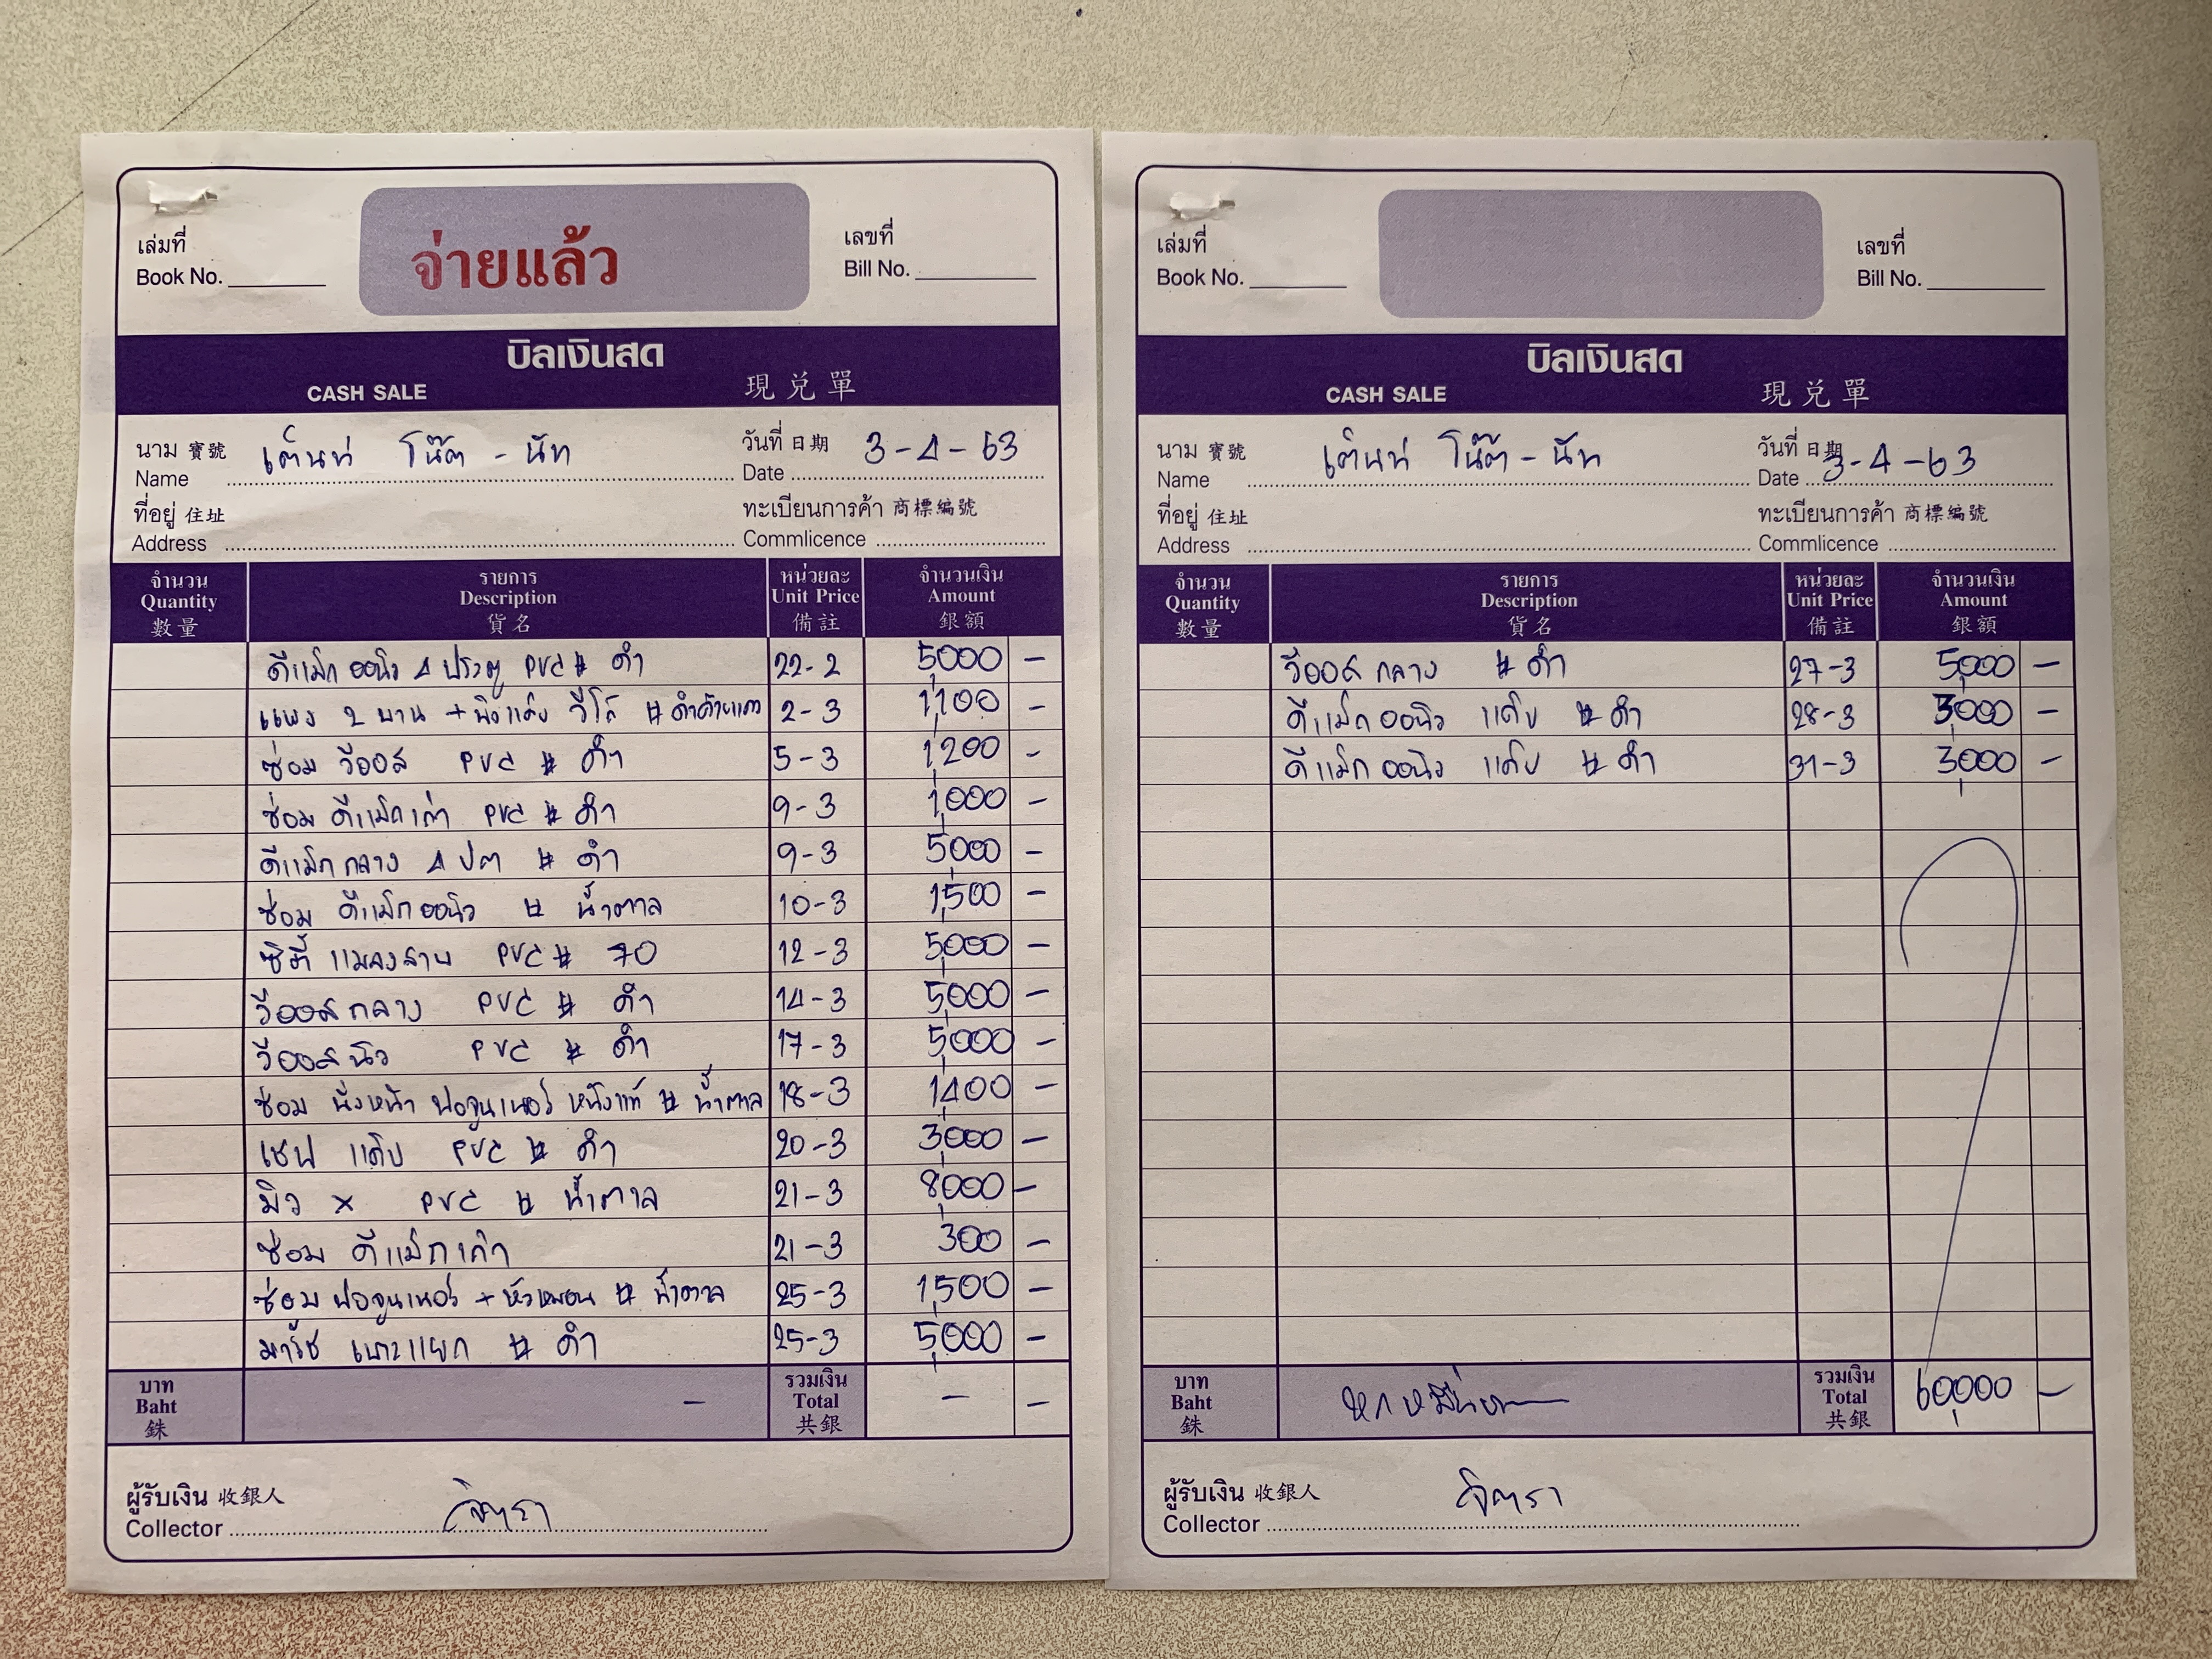 เล่มที่
Book No.
จ่ายแล้ว
เลขที่
Bill No.
บิลเงินสด
CASH SALE 現兌單
นาม 寶號 เต็นท์ โน๊ต - นัท วันที่ 日期 3-4-63
Name Date
ที่อยู่ 住址 ทะเบียนการค้า 商標編號
Address Commlicence
จำนวน รายการ หน่วยละ จำนวนเงิน
Quantity Description Unit Price Amount
數量 貨名 備註 銀額
ดีแม็ก ออนิว 4 ประตู PVC # ดำ 22-2 5,000 -
แผง 2 บาน + พิงแค็บ วีโก้ # ดำด้ายแดง 2-3 1,100 -
ซ่อม วีออส PVC # ดำ 5-3 1,200 -
ซ่อม ดีแม็กเก่า PVC # ดำ 9-3 1,000 -
ดีแม็กกลาง 4 ปต # ดำ 9-3 5,000 -
ซ่อม ดีแม็กออนิว # น้ำตาล 10-3 1,500 -
ซิตี้ แมลงสาบ PVC # 70 12-3 5,000 -
วีออสกลาง PVC # ดำ 14-3 5,000 -
วีออสนิว PVC # ดำ 17-3 5,000 -
ซ่อม นั่งหน้า ฟอจูนเนอร์ หนังแท้ # น้ำตาล 18-3 1,400 -
เชฟ แค็บ PVC # ดำ 20-3 3,000 -
มิว x PVC # น้ำตาล 21-3 8,000 -
ซ่อม ดีแม็กเก่า 21-3 300 -
ซ่อม ฟอจูนเนอร์ + หัวหมอน # น้ำตาล 25-3 1,500 -
มาร์ช เบาะแยก # ดำ 25-3 5,000 -
บาท รวมเงิน
Baht - Total - -
銖 共銀
ผู้รับเงิน 收銀人 จิตรา
Collector
เล่มที่
Book No.
เลขที่
Bill No.
บิลเงินสด
CASH SALE 現兌單
นาม 寶號 เต็นท์ โน๊ต - นัท วันที่ 日期 3-4-63
Name Date
ที่อยู่ 住址 ทะเบียนการค้า 商標編號
Address Commlicence
จำนวน รายการ หน่วยละ จำนวนเงิน
Quantity Description Unit Price Amount
數量 貨名 備註 銀額
วีออส กลาง # ดำ 27-3 5,000 -
ดีแม็กออนิว แค็บ # ดำ 28-3 3,000 -
ดีแม็กออนิว แค็บ # ดำ 31-3 3,000 -
บาท รวมเงิน
Baht หกหมื่นบาท Total 60,000 -
銖 共銀
ผู้รับเงิน 收銀人 จิตรา
Collector